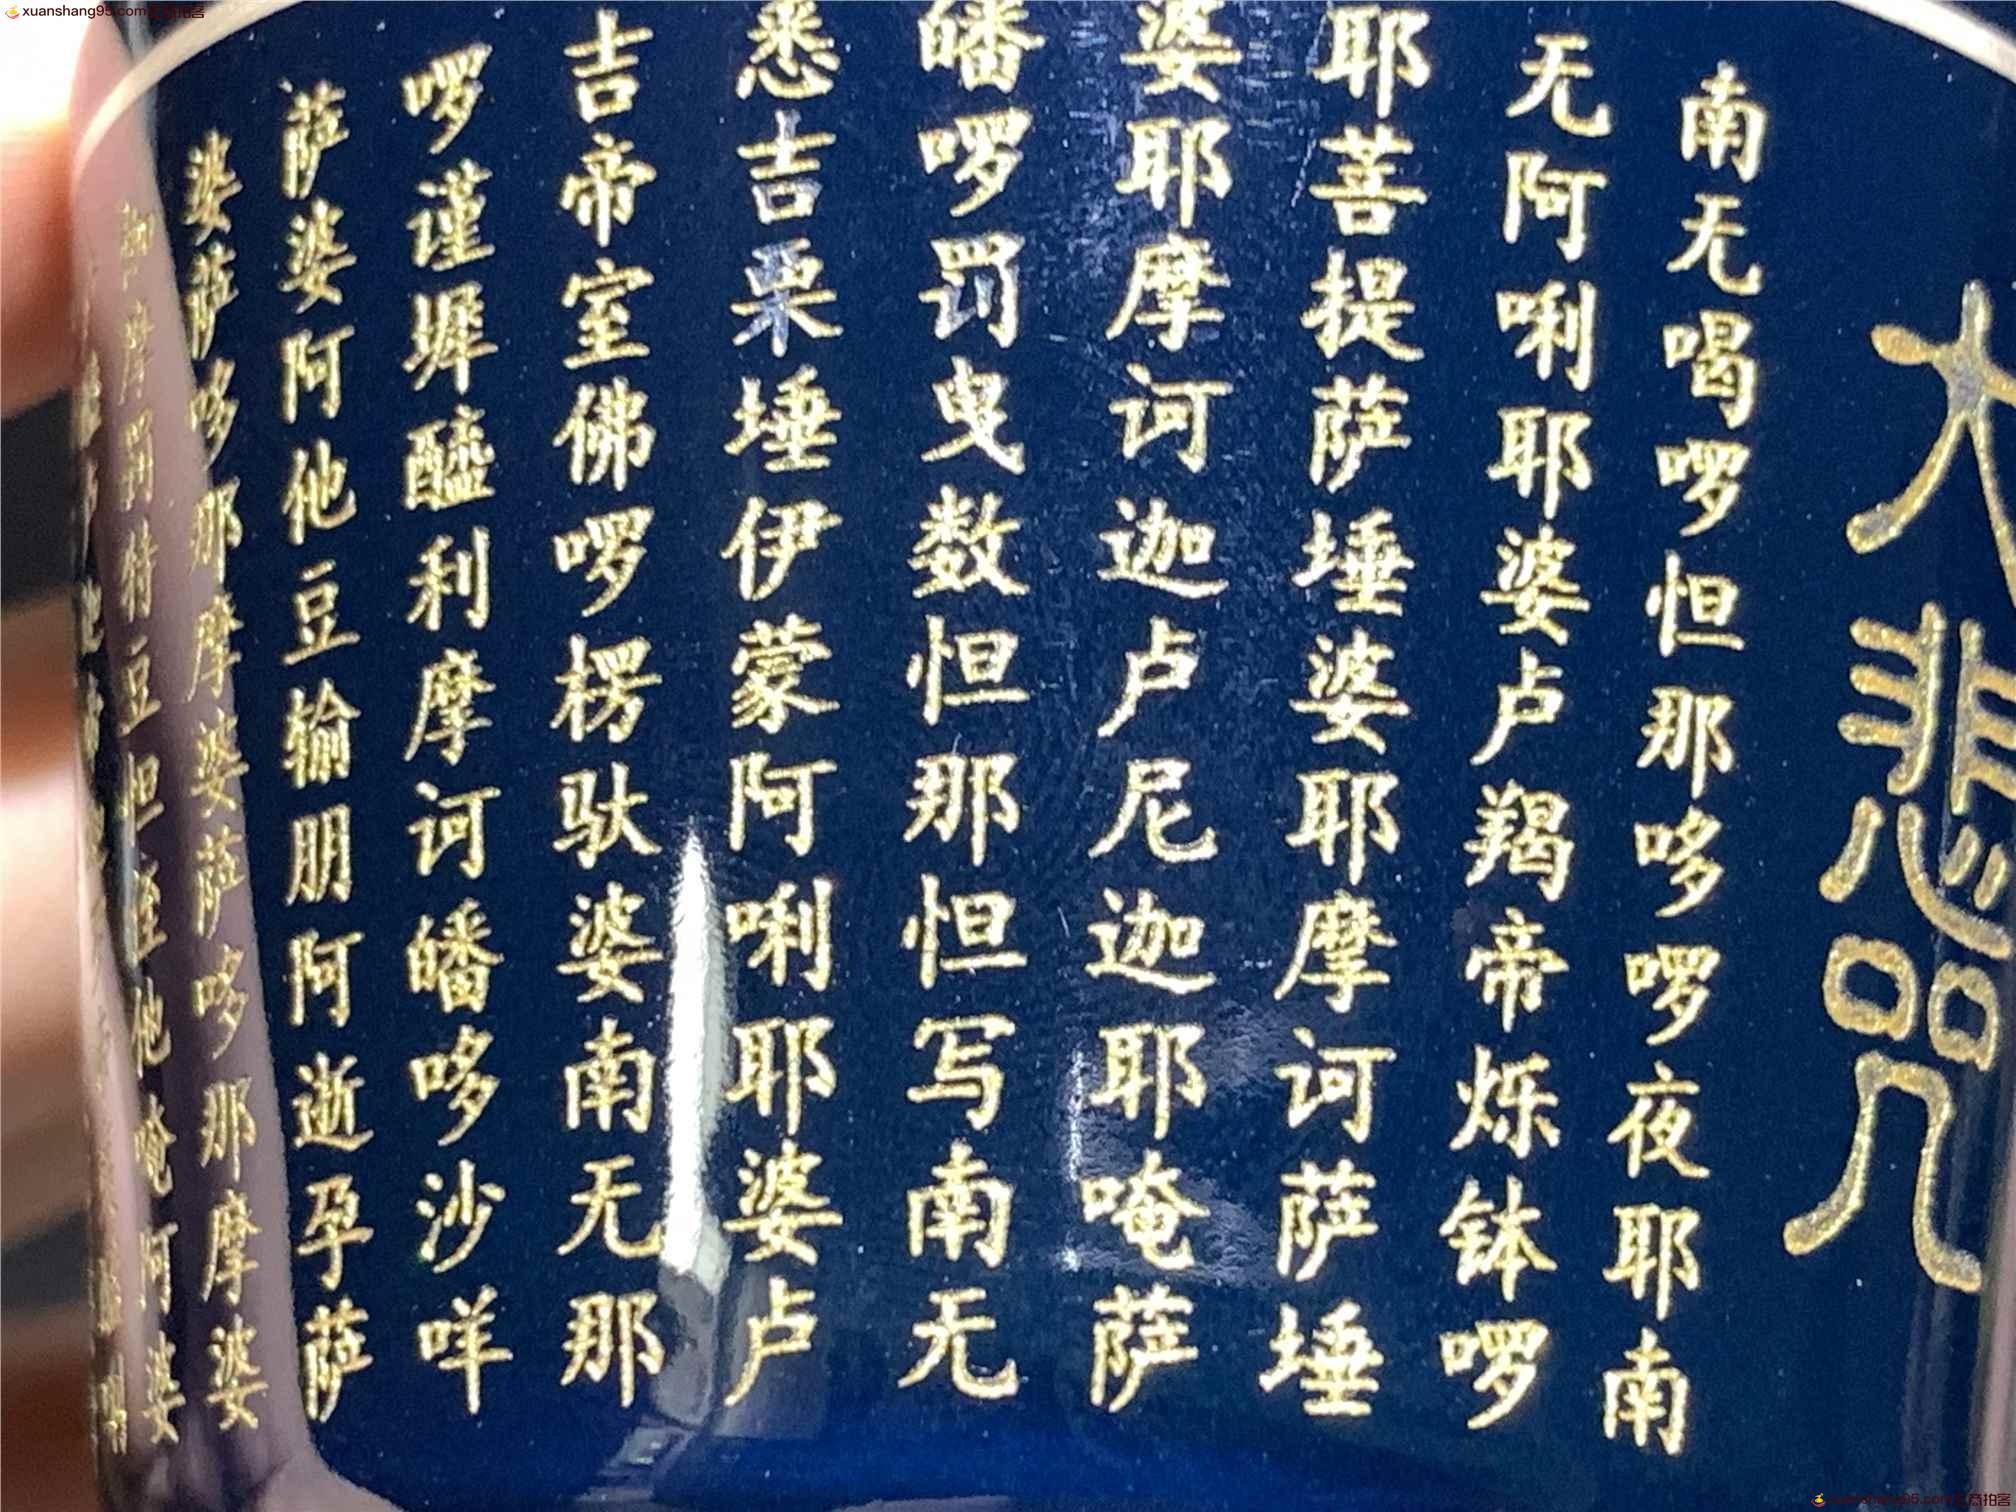 大悲咒
南无喝啰怛那哆啰夜耶南
无阿唎耶婆卢羯帝烁钵啰
耶菩提萨埵婆耶摩诃萨埵
婆耶摩诃迦卢尼迦耶唵萨
皤啰罚曳数怛那怛写南无
悉吉栗埵伊蒙阿唎耶婆卢
吉帝室佛啰楞驮婆南无那
啰谨墀醯利摩诃皤哆沙咩
萨婆阿他豆输朋阿逝孕萨
婆萨哆那摩婆萨哆那摩婆
伽摩罚特豆怛姪他唵阿婆
xuanshang95.com
xuanshang95.com